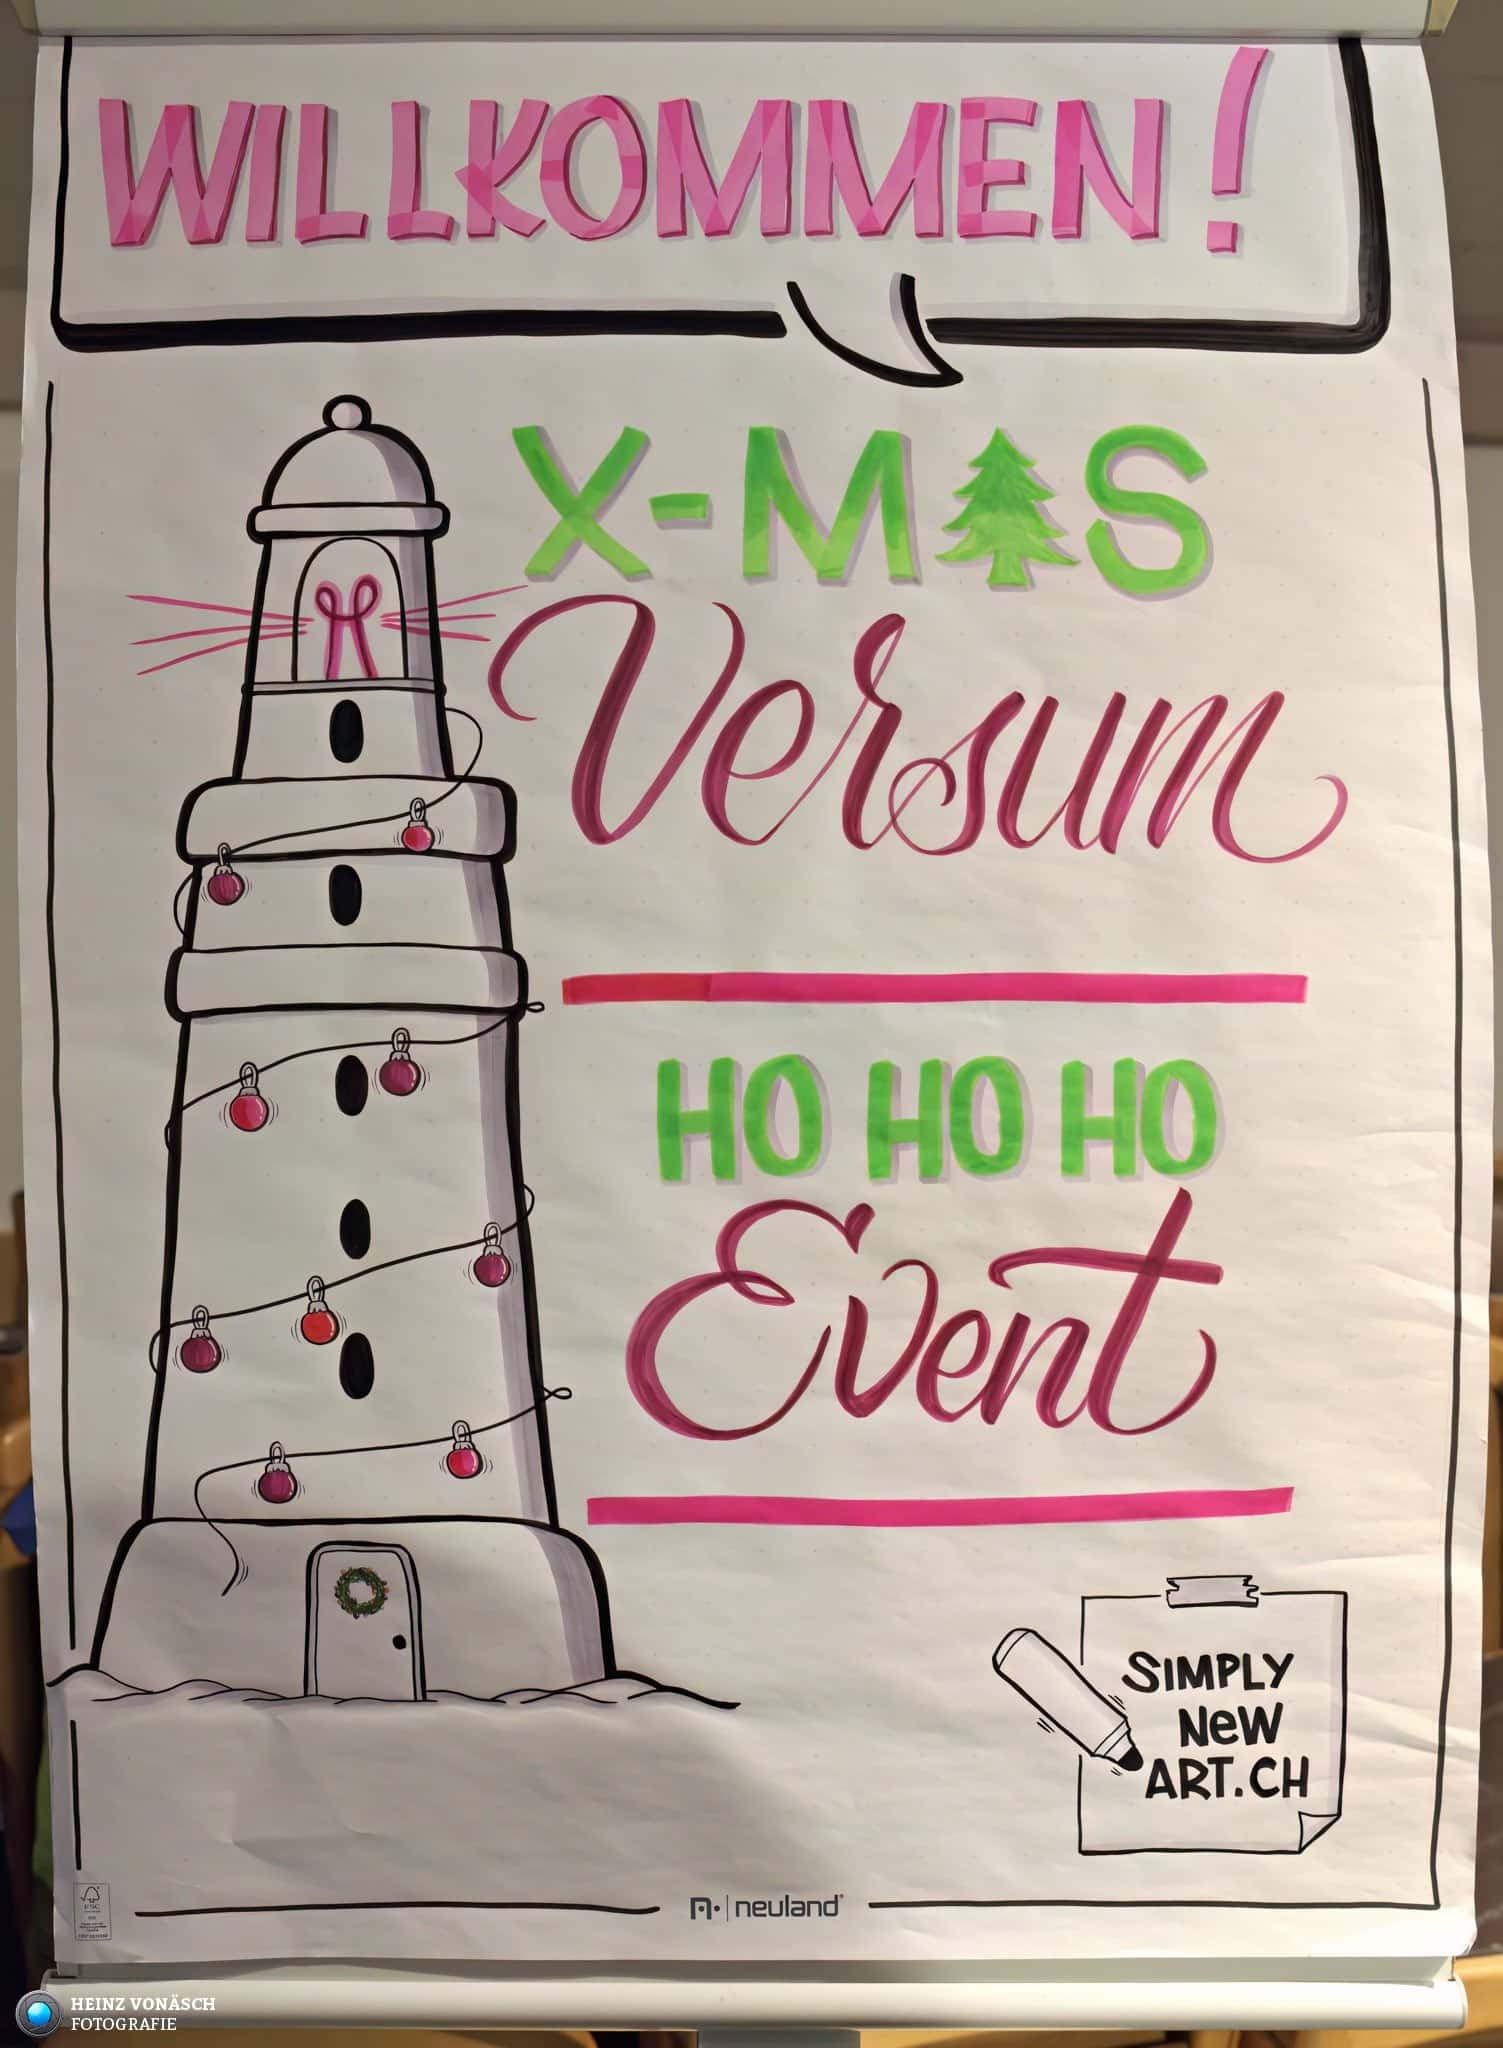 WILLKOMMEN!
X-MAS
Versum
HO HO HO
Event
SIMPLY
NeW
ART.CH
neuland
FSC
HEINZ VONÄSCH
FOTOGRAFIE